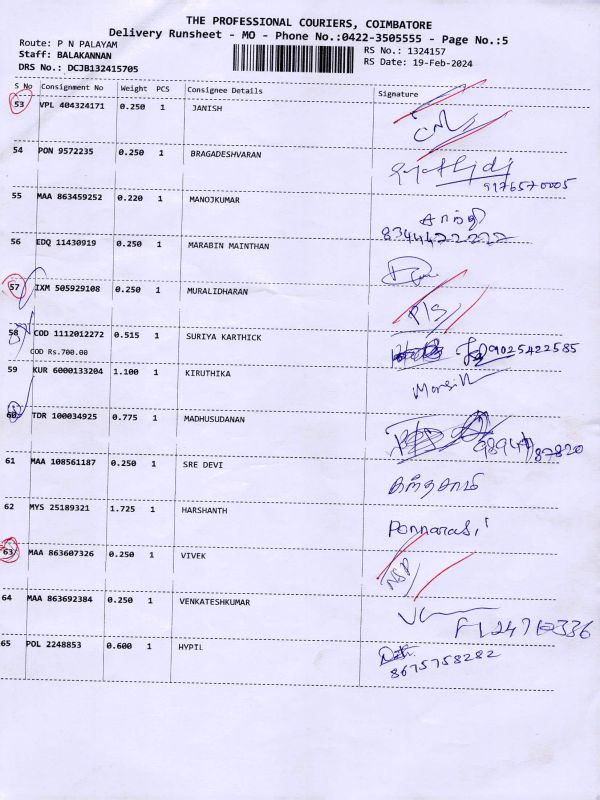 THE PROFESSIONAL COURIERS, COIMBATORE
Delivery Runsheet - MO - Phone No.:0422-3505555 - Page No.:5
Route: P N PALAYAM
Staff: BALAKANNAN
DRS No.: DCJB132415705
RS No.: 1324157
RS Date: 19-Feb-2024
S No Consignment No Weight PCS Consignee Details Signature
53 VPL 404324171 0.250 1 JANISH
54 PON 9572235 0.250 1 BRAGADESHVARAN
9176570005
55 MAA 863459252 0.220 1 MANOJKUMAR சாந்தி
8344422222
56 EDQ 11430919 0.250 1 MARABIN MAINTHAN
57 IXM 505929108 0.250 1 MURALIDHARAN P/S
58 COD 1112012272 0.515 1 SURIYA KARTHICK 9025422585
COD Rs.700.00
59 KUR 6000133204 1.100 1 KIRUTHIKA
60 TDR 100034925 0.775 1 MADHUSUDANAN
61 MAA 108561187 0.250 1 SRE DEVI கந்தசாமி
62 MYS 25189321 1.725 1 HARSHANTH Ponnarasi
63 MAA 863607326 0.250 1 VIVEK NSP
64 MAA 863692384 0.250 1 VENKATESHKUMAR
65 POL 2248853 0.600 1 HYPIL
8675758282